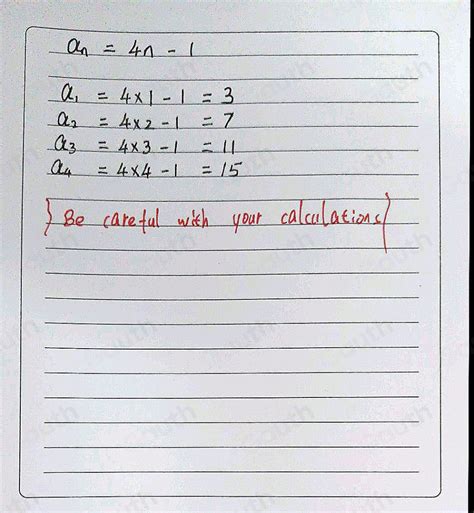 aₙ = 4n - 1
a₁ = 4×1 - 1 = 3
a₂ = 4×2 - 1 = 7
a₃ = 4×3 - 1 = 11
a₄ = 4×4 - 1 = 15
} Be careful with your calculations/